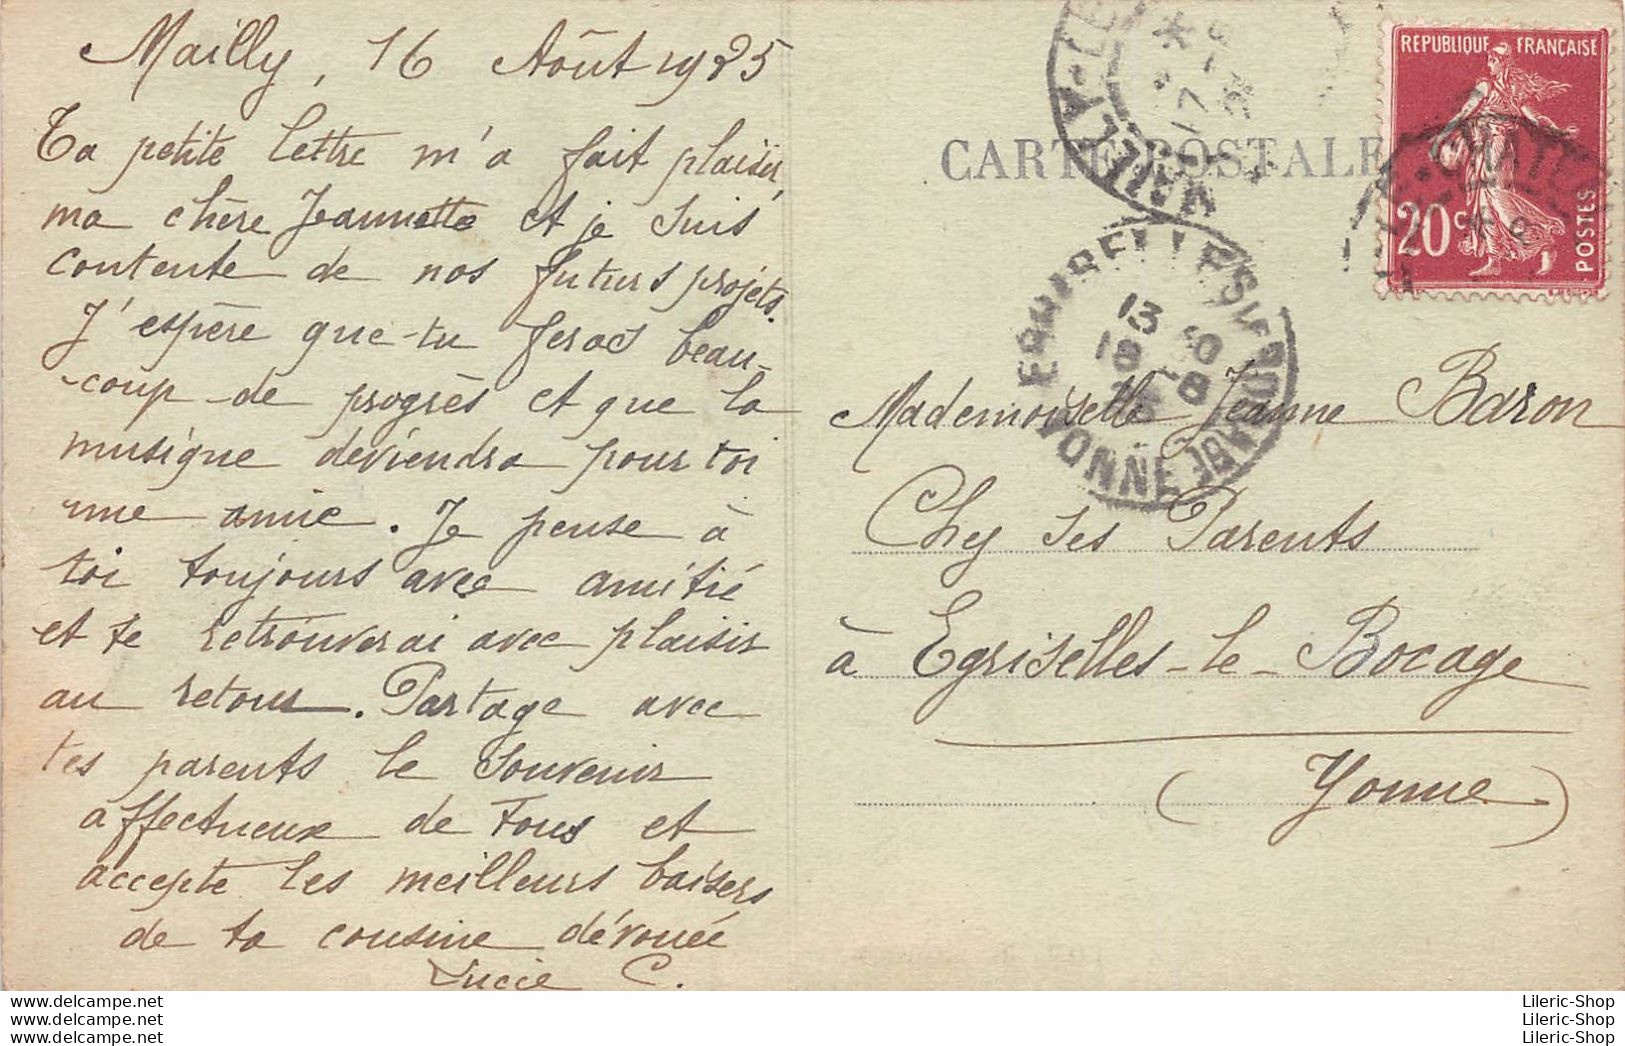 Mailly, 16 Août 1925
Ta petite lettre m'a fait plaisir,
ma chère Jeannette et je suis
contente de nos futurs projets.
J'espère que tu feras beau-
-coup de progrès et que la
musique deviendra pour toi
une amie. Je pense à
toi toujours avec amitié
et te retrouverai avec plaisir
au retour. Partage avec
tes parents le souvenir
affectueux de tous et
accepte les meilleurs baisers
de ta cousine dévouée
Lucie C.
CARTE POSTALE
REPUBLIQUE FRANÇAISE
20c
POSTES
MAILLY-LE-
17
EGRISELLES-LE-BOCAGE
13
18 - 8
YONNE
Mademoiselle Jeanne Baron
Chez ses Parents
à Egriselles-le-Bocage
(Yonne)
www.delcampe.net
www.delcampe.net
www.delcampe.net
Lileric-Shop
Lileric-Shop
Lileric-Shop